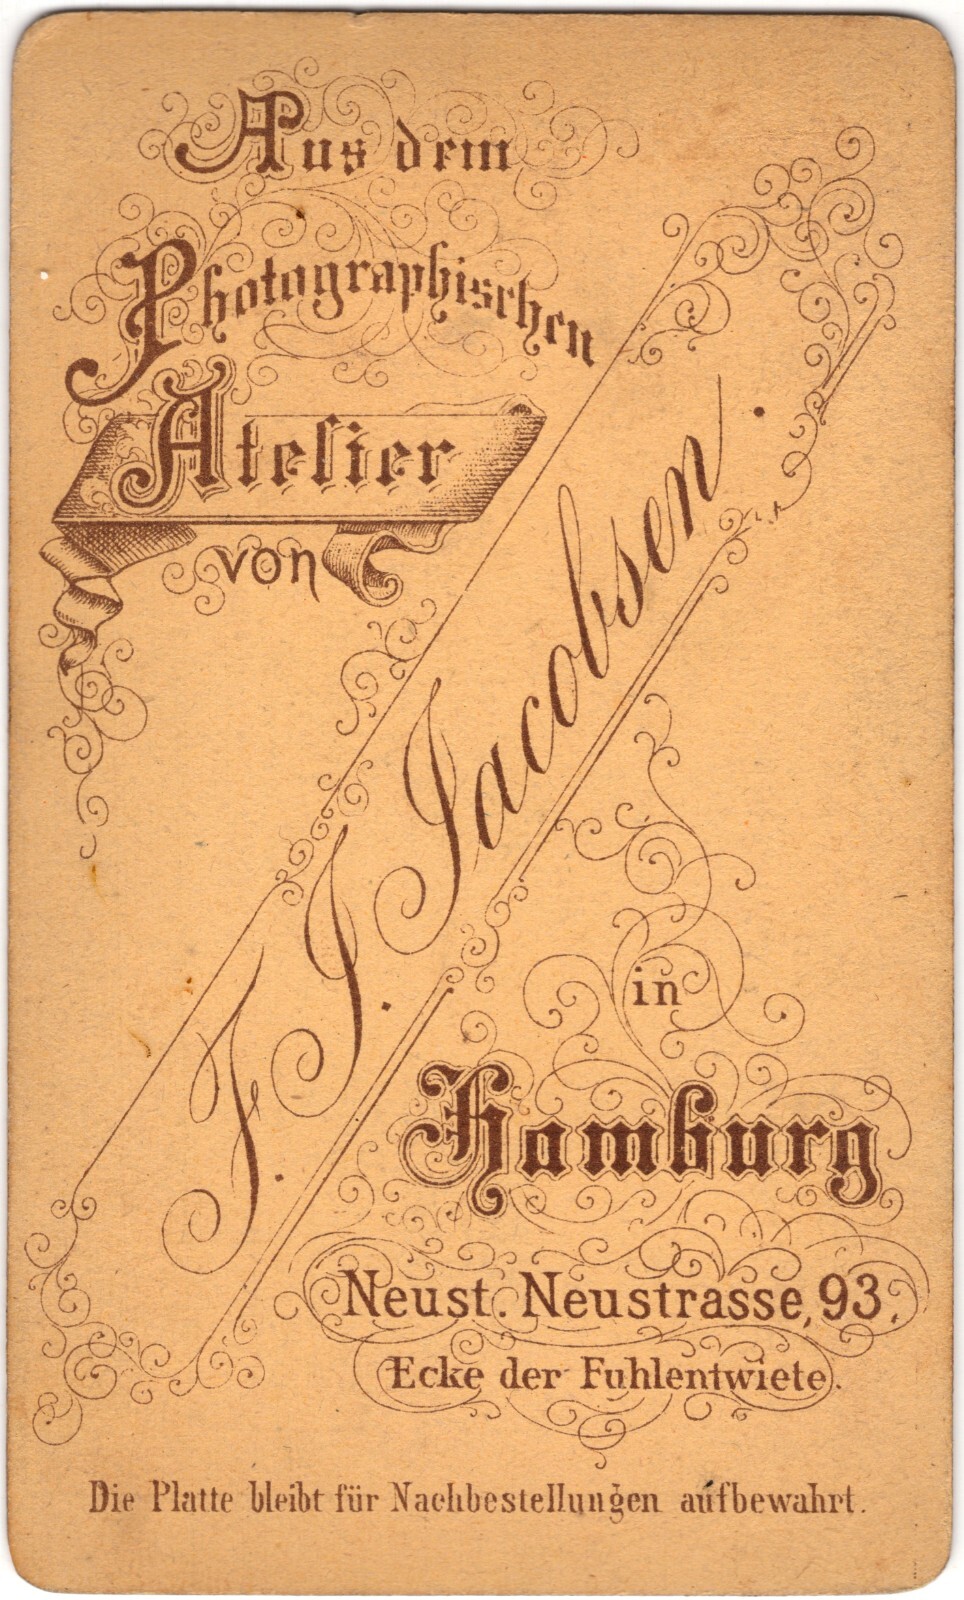 Aus dem
Photographischen
Atelier
von
F. J. Jacobsen.
in
Hamburg
Neust. Neustrasse, 93.
Ecke der Fuhlentwiete.
Die Platte bleibt für Nachbestellungen aufbewahrt.